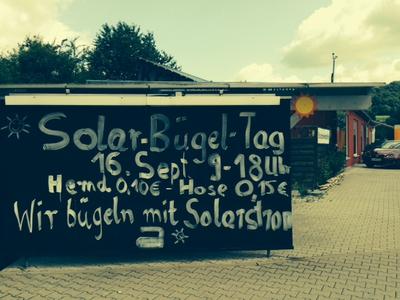 Solar-Bügel-Tag
16. Sept 9-18 Uhr
Hemd 0,10€ - Hose 0,15€
Wir bügeln mit Solarstrom